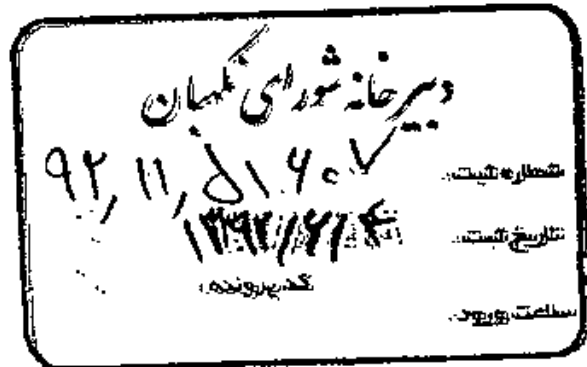 دبیرخانه شورای نگهبان
شماره ثبت: ۹۲/۱۱/۵۱۶۰۷
تاریخ ثبت: ۱۳۹۲/۶/۴
کد پرونده:
ساعت ورود: